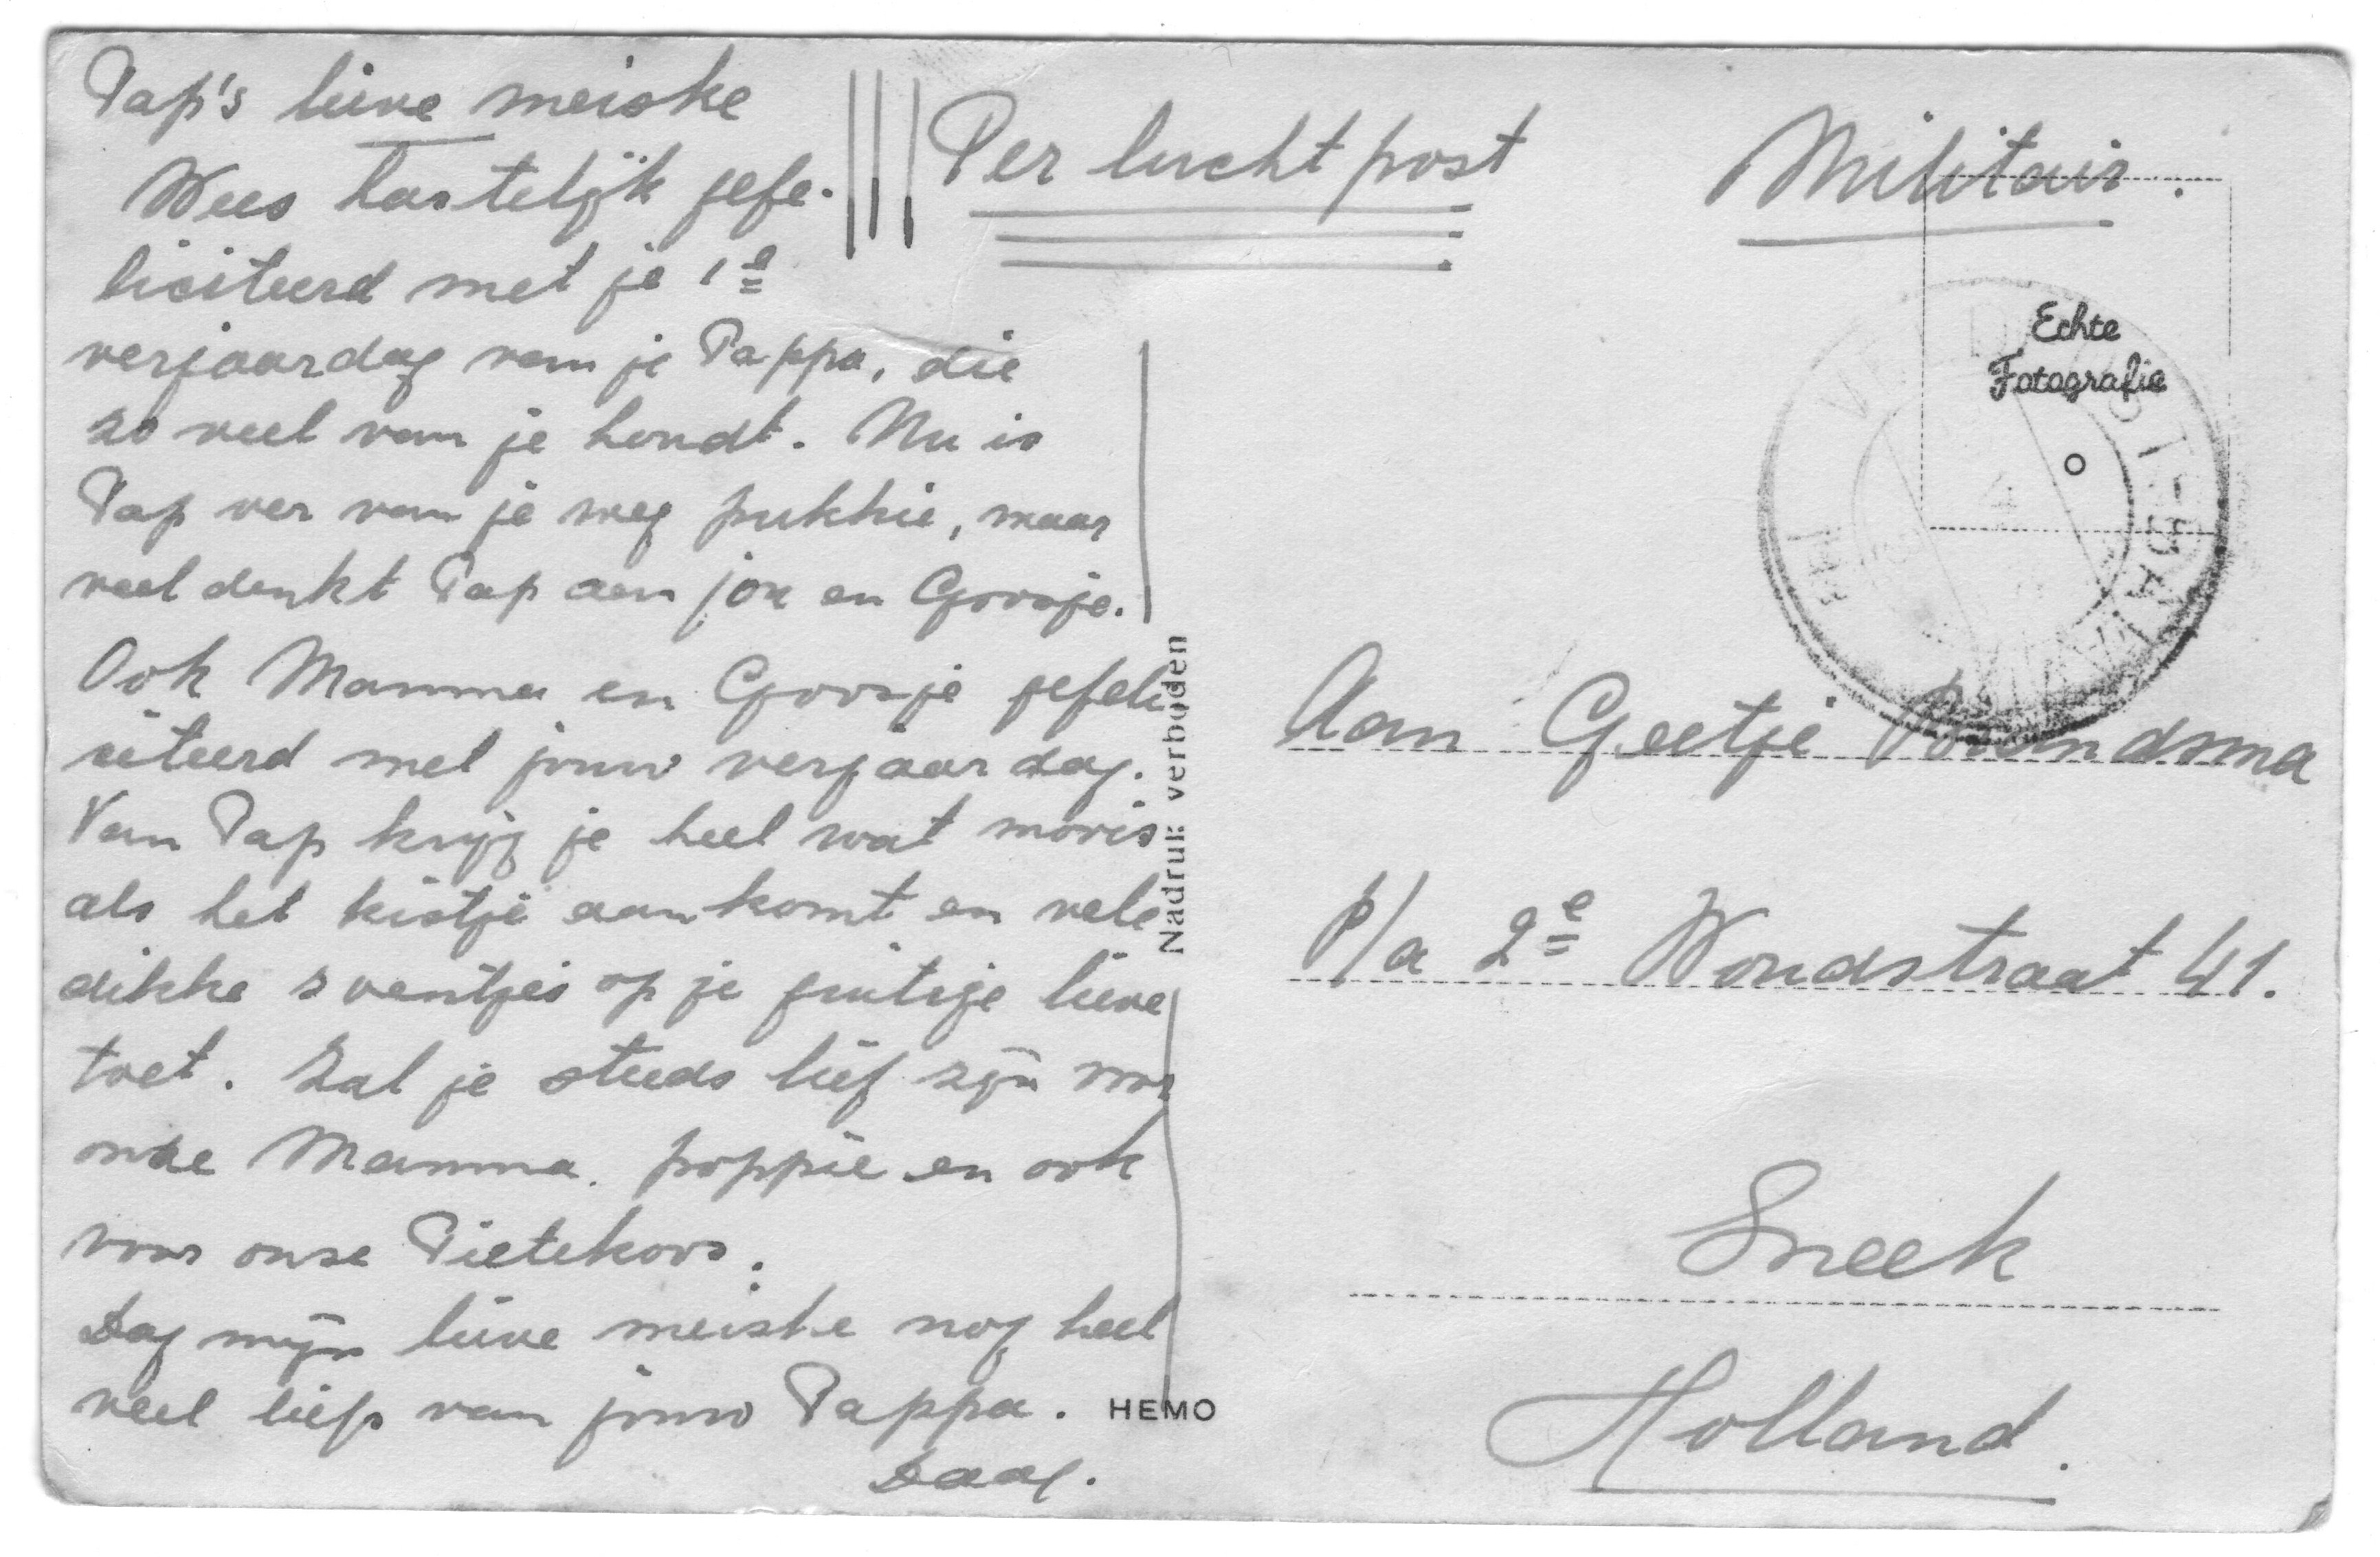 Pap's lieve meiske
Wees hartelijk gefe-
liciteerd met je 1e
verjaardag van je Pappa, die
zo veel van je houdt. Nu is
Pap ver van je weg pukkie, maar
veel denkt Pap aan jou en Goosje.
Ook Mamma en Goosje gefeli
citeerd met jouw verjaardag.
Van Pap krijg je heel wat moois
als het kistje aankomt en vele
dikke zoentjes op je guitige lieve
toet. Zal je steeds lief zijn voor
onze Mamma poppie en ook
voor onze Pietekoos.
Dag mijn lieve meiske nog heel
veel liefs van jouw Pappa.
Daag.
Per luchtpost
Militair.
Echte
Fotografie
VELDPOST-BATAVIA
4
Nadruk verboden
HEMO
Aan Geetje Brandsma
p/a 2e Woudstraat 41.
Sneek
Holland.